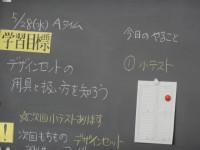 5/28(水) Aタイム
学習目標
デザインセットの
用具と扱い方を知ろう
☆次回小テストあります
!
次回もちもの デザインセット
今日のやること
① 小テスト